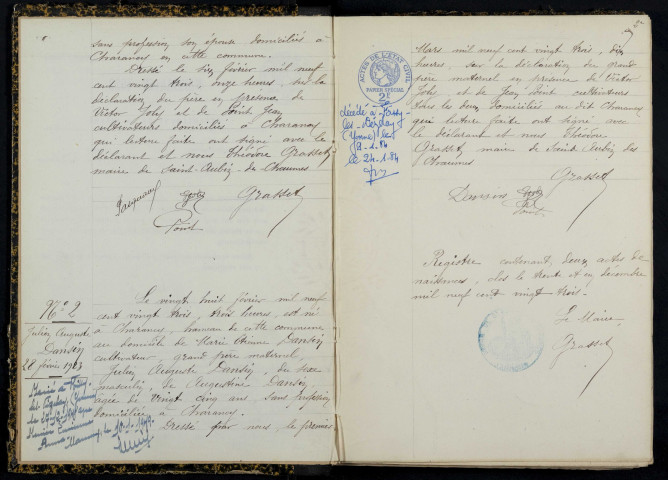 sans profession son épouse domiciliés à
Charancy en cette commune.
Dressé le dix février mil neuf
cent vingt trois, onze heures, sur la
déclaration du père en présence de
Victor Joly et de Point Jean
cultivateurs domiciliés à Charancy
qui lecture faite ont signé avec le
déclarant et nous Théodore Grasset
maire de Saint-Aubin-des-Chaumes
Joly
Grasset
Point
N° 2
Julien Auguste
Dansin
28 février 1923
Marié à
Le vingt huit février mil neuf
cent vingt trois, trois heures, est né
à Charancy, hameau de cette commune
au domicile de Marie Dansin
cultivateur, grand père maternel,
Julien Auguste Dansin, du sexe
masculin, de Augustine Dansin
âgée de vingt cinq ans sans profession
domiciliée à Charancy.
Dressé par nous le premier
ACTES DE L'ÉTAT CIVIL
PAPIER SPÉCIAL
2F
décédé à
(Yonne) le
9-1-84
le 24-1-84
Mars mil neuf cent vingt trois, dix
heures, sur la déclaration du grand
père maternel en présence de Victor
Joly, et de Jean Point cultivateurs
tous les deux domiciliés au dit Charancy
qui lecture faite ont signé avec
le déclarant et nous Théodore
Grasset, maire de Saint Aubin des
Chaumes
Grasset
Dansin Joly
Point
Registre contenant deux actes de
naissances, clos le trente et un décembre
mil neuf cent vingt trois.
Le Maire,
Grasset